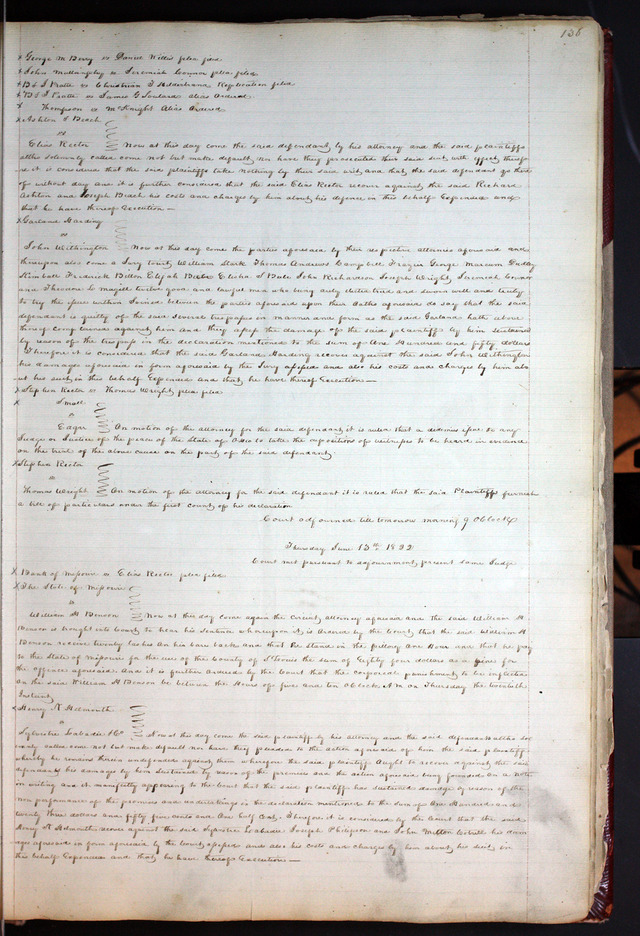 136
x George M Berry vs Daniel Willis plea filed
x John Mullanphy vs Jeremiah Connor plea filed
x B & S Pratte vs Christian Hilderbrand Replication filed
x B & S Pratte vs James G Soulard alias ordered
x Thompson vs McKnight Alias Ordered
x Ashton & Beach
vs
Elias Rector Now at this day come the said defendant by his attorney and the said plaintiffs
altho solemnly called come not but make default nor have they prosecuted their said suit with effect therefo
re it is considered that the said plaintiffs take nothing by their said writ and that the said defendant go there
of without day and it is further considered that the said Elias Rector recover against the said Richard
Ashton and Joseph Beach his costs and charges by him about his defence in this behalf Expended and
that he have thereof Execution —
x Garland Harding
vs
John Withington Now at this day come the parties aforesaid by their respective attornies aforesaid and
thereupon also come a Jury towit, William Stark Thomas Andrews Campbell Frazier George Marcum Dudley
Kimball Frederick Billon Elijah Elisha John Richardson Joseph Wright, Jeremiah Connor
and Theodore L Magill twelve good and lawful men who being duly elected tried and sworn well and truly
to try the issue within Joined between the parties aforesaid upon their Oaths aforesaid do say that the said
defendant is guilty of the said several trespasses in manner and form as the said Garland hath above
thereof Complained against him and they assess the damage of the said plaintiff by him sustained
by reason of the trespass in the declaration mentioned to the sum of One Hundred and fifty dollars
Therefore it is considered that the said Garland Harding recover against the said John Withington
his damages aforesaid in form aforesaid by the Jury assessed and also his costs and charges by him abo
ut his suit in this behalf Expended and that he have thereof Execution —
x Stephen Rector vs Thomas Wright plea filed
x Small
vs
Edgar On motion of the attorney for the said defendant, it is ruled that a dedimus issue to any
Judge or Justice of the peace of the State of Ohio to take the depositions of witnesses to be heard in evidence
on the trial of the above cause on the part of the said defendant
x Stephen Rector
vs
Thomas Wright On motion of the attorney for the said defendant it is ruled that the said Plaintiff furnish
a bill of particulars under the first count of his declaration
Court adjourned till tomorrow morning 9 OClock
Thursday June 13th 1822
Court met pursuant to adjournment, present same Judge
x Bank of Missouri vs Elias Rector plea filed
x The State of Missouri
vs
William H Benson Now at this day come again the Circuit attorney aforesaid and the said William H
Benson is brought into Court to hear his Sentence whereupon it is Ordered by the Court that the said William H
Benson receive twenty lashes On his bare back and that he stand in the pillory One Hour and that he pay
to the State of Missouri for the use of the County of St Louis the sum of Eighty four dollars as a fine for
the offence aforesaid And it is further Ordered by the Court that the corporeal punishment to be inflicted
on the said William H Benson be between the Hours of five and ten OClock A M on Thursday the twentieth
Instant
x Henry N
vs
Sylvestre Labadie & Co Now at this day come the said plaintiff by his attorney and the said defendants altho sol
emnly called come not but make default nor have they pleaded to the action aforesaid of him the said plaintiff
whereby he remains therein undefended against them wherefore the said plaintiff ought to recover against the said
defendants his damages by him sustained by reason of the premises and the action aforesaid being founded on a note
in writing and it manifestly appearing to the Court that the said plaintiff has sustained damage by reason of the
non performance of the promises and undertakings in the declaration mentioned to the sum of One Hundred and
twenty three dollars and fifty five cents and One half Cent. Therefore it is considered by the Court that the said
Henry N recover against the said Sylvestre Labadie Joseph Philipson and John Milton his dam
ages aforesaid in form aforesaid by the Court assessed and also his costs and charges by him about his suit in
this behalf Expended and that he have thereof Execution —